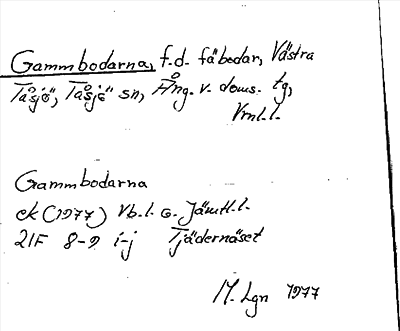 Gammbodarna, f.d. fäbodar, Västra
Tåsjö, Tåsjö sn, Ång. v. doms. tg,
Vrnl.l.
Gammbodarna
ek (1977) Vb.l. o. Jämtl.l.
21F 8-9 i-j Tjädernäset
M. Lgn 1977